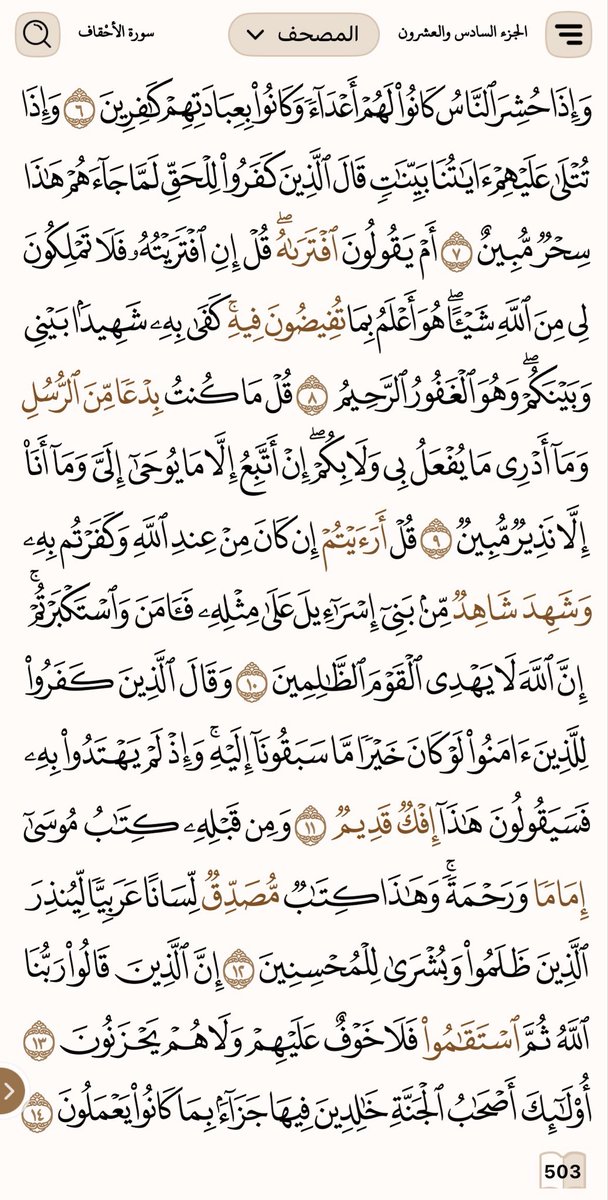 الجزء السادس والعشرون
المصحف
سورة الأحقاف
وَإِذَا حُشِرَ ٱلنَّاسُ كَانُوا۟ لَهُمْ أَعْدَآءً وَكَانُوا۟ بِعِبَادَتِهِمْ كَٰفِرِينَ ٦ وَإِذَا
تُتْلَىٰ عَلَيْهِمْ ءَايَٰتُنَا بَيِّنَٰتٍ قَالَ ٱلَّذِينَ كَفَرُوا۟ لِلْحَقِّ لَمَّا جَآءَهُمْ هَٰذَا
سِحْرٌ مُّبِينٌ ٧ أَمْ يَقُولُونَ ٱفْتَرَىٰهُ ۖ قُلْ إِنِ ٱفْتَرَيْتُهُۥ فَلَا تَمْلِكُونَ
لِى مِنَ ٱللَّهِ شَيْـًٔا ۖ هُوَ أَعْلَمُ بِمَا تُفِيضُونَ فِيهِ ۚ كَفَىٰ بِهِۦ شَهِيدًۢا بَيْنِى
وَبَيْنَكُمْ ۖ وَهُوَ ٱلْغَفُورُ ٱلرَّحِيمُ ٨ قُلْ مَا كُنتُ بِدْعًا مِّنَ ٱلرُّسُلِ
وَمَآ أَدْرِى مَا يُفْعَلُ بِى وَلَا بِكُمْ ۖ إِنْ أَتَّبِعُ إِلَّا مَا يُوحَىٰٓ إِلَىَّ وَمَآ أَنَا۠
إِلَّا نَذِيرٌ مُّبِينٌ ٩ قُلْ أَرَءَيْتُمْ إِن كَانَ مِنْ عِندِ ٱللَّهِ وَكَفَرْتُم بِهِۦ
وَشَهِدَ شَاهِدٌ مِّنۢ بَنِىٓ إِسْرَٰٓءِيلَ عَلَىٰ مِثْلِهِۦ فَـَٔامَنَ وَٱسْتَكْبَرْتُمْ ۚ
إِنَّ ٱللَّهَ لَا يَهْدِى ٱلْقَوْمَ ٱلظَّٰلِمِينَ ١٠ وَقَالَ ٱلَّذِينَ كَفَرُوا۟
لِلَّذِينَ ءَامَنُوا۟ لَوْ كَانَ خَيْرًا مَّا سَبَقُونَآ إِلَيْهِ ۚ وَإِذْ لَمْ يَهْتَدُوا۟ بِهِۦ
فَسَيَقُولُونَ هَٰذَآ إِفْكٌ قَدِيمٌ ١١ وَمِن قَبْلِهِۦ كِتَٰبُ مُوسَىٰٓ
إِمَامًا وَرَحْمَةً ۚ وَهَٰذَا كِتَٰبٌ مُّصَدِّقٌ لِّسَانًا عَرَبِيًّا لِّيُنذِرَ
ٱلَّذِينَ ظَلَمُوا۟ وَبُشْرَىٰ لِلْمُحْسِنِينَ ١٢ إِنَّ ٱلَّذِينَ قَالُوا۟ رَبُّنَا
ٱللَّهُ ثُمَّ ٱسْتَقَٰمُوا۟ فَلَا خَوْفٌ عَلَيْهِمْ وَلَا هُمْ يَحْزَنُونَ ١٣
أُو۟لَٰٓئِكَ أَصْحَٰبُ ٱلْجَنَّةِ خَٰلِدِينَ فِيهَا جَزَآءًۢ بِمَا كَانُوا۟ يَعْمَلُونَ ١٤
503